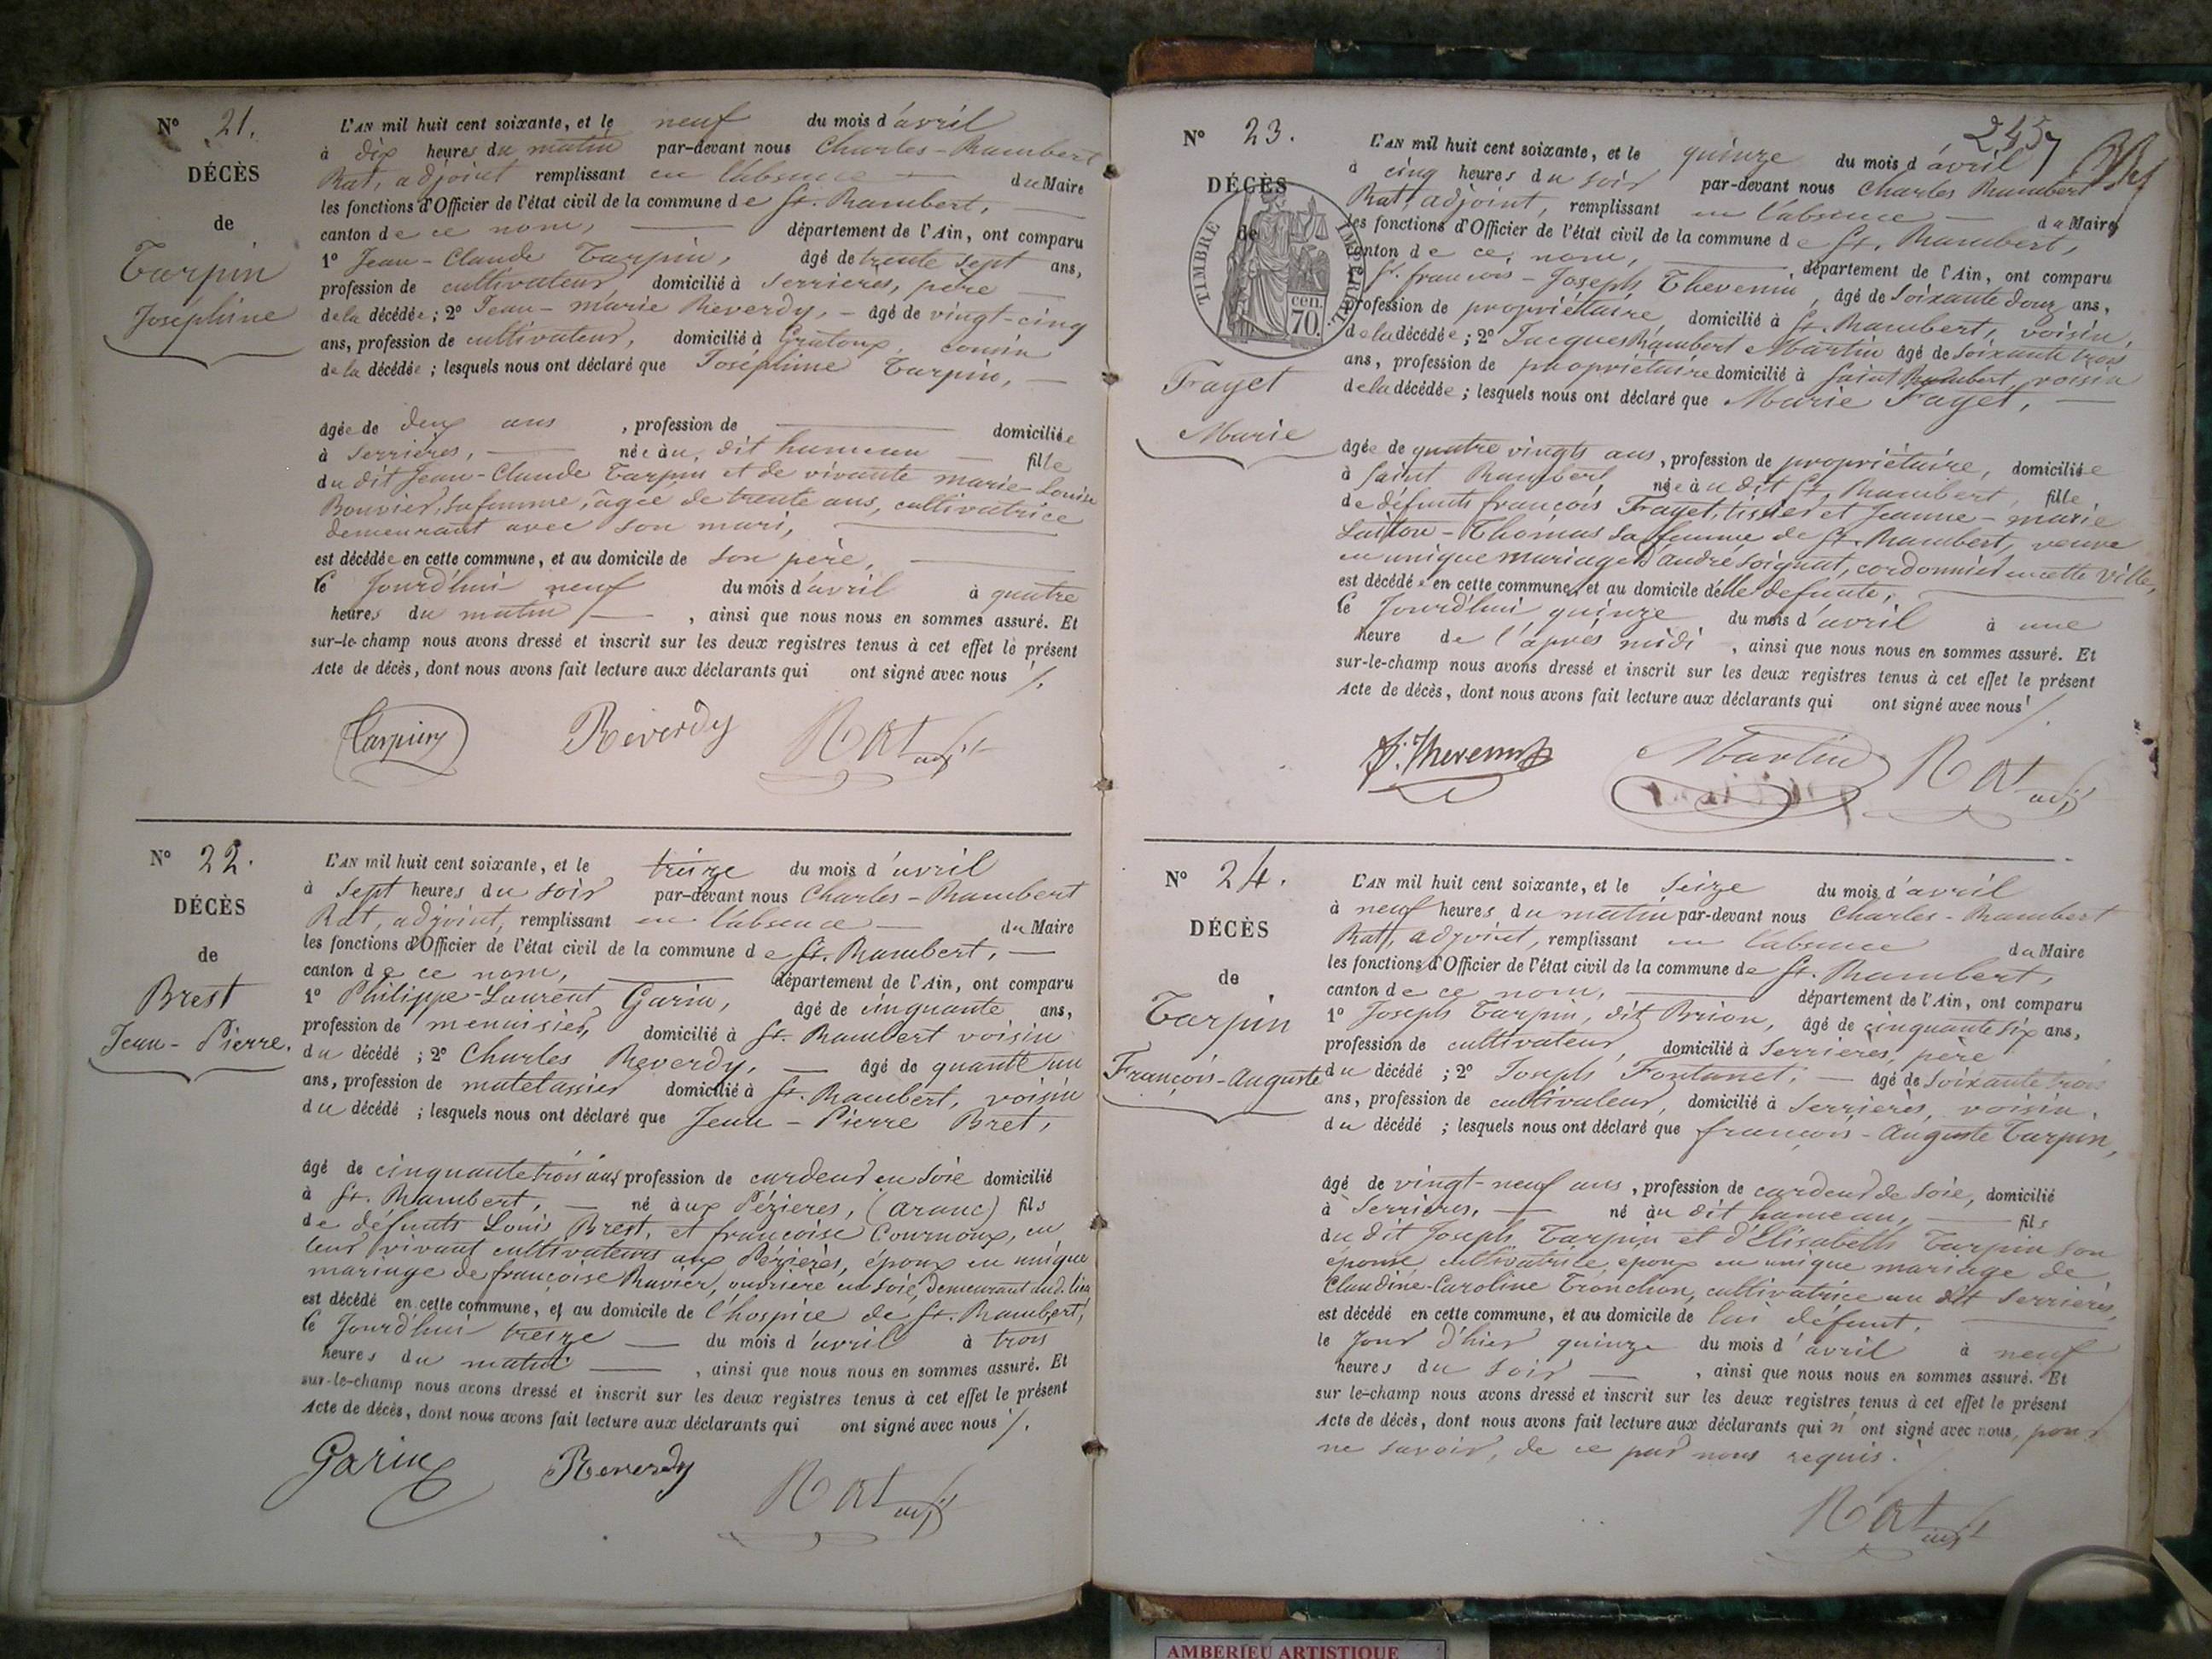 N° 21.
DÉCÈS
de
Tarpin
Joséphine
L'AN mil huit cent soixante, et le neuf du mois d'avril
à dix heures du matin par-devant nous Charles-Rambert
Rat, adjoint remplissant en l'absence du Maire
les fonctions d'Officier de l'état civil de la commune de St. Rambert,
canton de ce nom, département de l'Ain, ont comparu
1° Jean-Claude Tarpin, âgé de trente sept ans,
profession de cultivateur domicilié à Serrières, père
de la décédée ; 2° Jean-marie Reverdy, - âgé de vingt-cinq
ans, profession de cultivateur, domicilié à Gratoux, cousin
de la décédée ; lesquels nous ont déclaré que Joséphine Tarpin,
âgée de deux ans , profession de domiciliée
à Serrières, née au dit hameau fille
du dit Jean-Claude Tarpin et de vivante marie-Louise
Bouvier, sa femme, âgée de trente ans, cultivatrice
demeurant avec son mari,
est décédée en cette commune, et au domicile de son père,
le Jourd'hui neuf du mois d'avril à quatre
heures du matin , ainsi que nous nous en sommes assuré. Et
sur-le-champ nous avons dressé et inscrit sur les deux registres tenus à cet effet le présent
Acte de décès, dont nous avons fait lecture aux déclarants qui ont signé avec nous /.
Tarpin Reverdy Rat adjt
N° 22.
DÉCÈS
de
Brest
Jean-Pierre.
L'AN mil huit cent soixante, et le treize du mois d'avril
à Sept heures du soir par-devant nous Charles-Rambert
Rat, adjoint, remplissant en l'absence du Maire
les fonctions d'Officier de l'état civil de la commune de St. Rambert,
canton de ce nom, département de l'Ain, ont comparu
1° Philippe-Laurent Garin, âgé de cinquante ans,
profession de menuisier, domicilié à St. Rambert voisin
du décédé ; 2° Charles Reverdy, âgé de quante un
ans, profession de matelassier domicilié à St. Rambert, voisin
du décédé ; lesquels nous ont déclaré que Jean-Pierre Bret,
âgé de cinquante trois ans, profession de cardeur en soie domicilié
à St. Rambert, né aux Pézières, (aranc) fils
de défunts Louis Brest, et françoise Cournoux, en
leur vivant cultivateurs aux Pézières, époux en unique
mariage de françoise Ravier, ouvrière en soie, demeurant aud. lieu
est décédé en cette commune, et au domicile de l'hospice de St. Rambert,
le Jourd'hui treize du mois d'avril à trois
heures du matin , ainsi que nous nous en sommes assuré. Et
sur-le-champ nous avons dressé et inscrit sur les deux registres tenus à cet effet le présent
Acte de décès, dont nous avons fait lecture aux déclarants qui ont signé avec nous /.
Garin Reverdy Rat adjt
2457
N° 23.
DÉCÈS
de
TIMBRE IMPÉRIAL
cen.
70.
Frayet
Marie
L'AN mil huit cent soixante, et le quinze du mois d'avril
à cinq heures du soir par-devant nous Charles Rambert
Rat, adjoint, remplissant en l'absence du Maire
les fonctions d'Officier de l'état civil de la commune de St. Rambert,
canton de ce nom, département de l'Ain, ont comparu
1° francois-Joseph Thevenin, âgé de Soixante douz ans,
profession de propriétaire domicilié à St. Rambert, voisin,
de la décédée ; 2° Jacques Rambert Martin âgé de soixante trois
ans, profession de propriétaire domicilié à Saint Rambert, voisin
de la décédée ; lesquels nous ont déclaré que Marie Frayet,
âgée de quatre vingts ans, profession de propriétaire, domiciliée
à Saint Rambert, née au dit St. Rambert, fille
de défunts françois Frayet, tissier et Jeanne-marie
Thomas sa femme de St. Rambert, veuve
en unique mariage d'andré Soignat, cordonnier en cette ville,
est décédée en cette commune, et au domicile d'elle defunte,
le Jourd'hui quinze du mois d'avril à une
heure de l'après midi , ainsi que nous nous en sommes assuré. Et
sur-le-champ nous avons dressé et inscrit sur les deux registres tenus à cet effet le présent
Acte de décès, dont nous avons fait lecture aux déclarants qui ont signé avec nous /.
f. Thevenin Martin Rat adjt
N° 24.
DÉCÈS
de
Tarpin
François-Auguste
L'AN mil huit cent soixante, et le Seize du mois d'avril
à neuf heures du matin par-devant nous Charles-Rambert
Rat, adjoint, remplissant en l'absence du Maire
les fonctions d'Officier de l'état civil de la commune de St. Rambert,
canton de ce nom, département de l'Ain, ont comparu
1° Joseph Tarpin, dit Brion, âgé de cinquante six ans,
profession de cultivateur, domicilié à Serrières, père
du décédé ; 2° Joseph Fontanet, âgé de Soixante trois
ans, profession de cultivateur, domicilié à Serrières, voisin,
du décédé ; lesquels nous ont déclaré que françois-Auguste Tarpin,
âgé de vingt-neuf ans, profession de cardeur de soie, domicilié
à Serrières, né au dit hameau, fils
du dit Joseph Tarpin et d'Elisabeth Tarpin son
épouse cultivatrice, époux en unique mariage de
Claudine-Caroline Tronchon, cultivatrice au dit Serrières,
est décédé en cette commune, et au domicile de lui défunt,
le Jour d'hier quinze du mois d'avril à neuf
heures du soir , ainsi que nous nous en sommes assuré. Et
sur le-champ nous avons dressé et inscrit sur les deux registres tenus à cet effet le présent
Acte de décès, dont nous avons fait lecture aux déclarants qui n'ont signé avec nous, pour
ne savoir, de ce par nous requis.
Rat adjt
AMBERIEU ARTISTIQUE